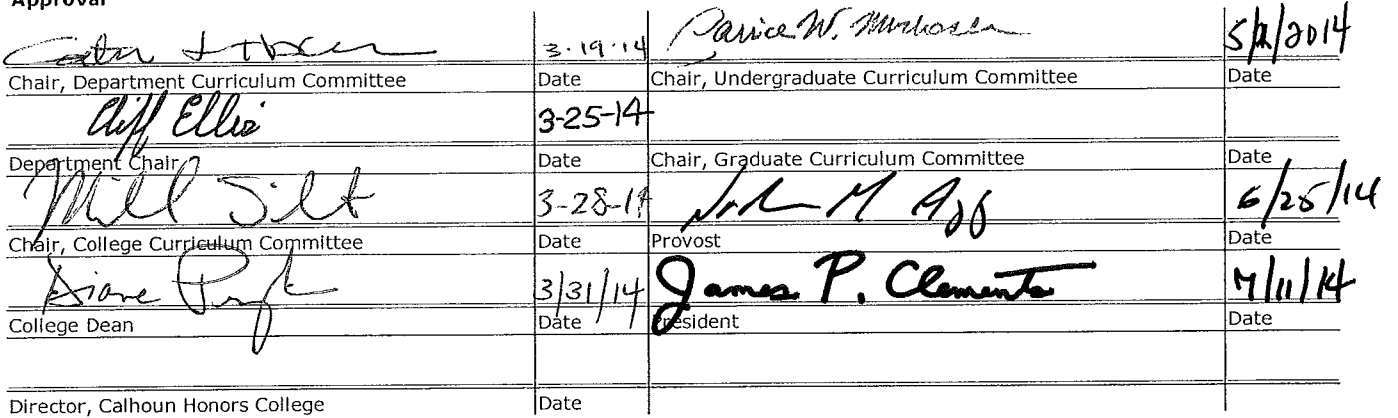 Approval
3-19-14 5/2/2014
Chair, Department Curriculum Committee Date Chair, Undergraduate Curriculum Committee Date
Cliff Ellis 3-25-14
Department Chair Date Chair, Graduate Curriculum Committee Date
3-28-14 6/25/14
Chair, College Curriculum Committee Date Provost Date
3/31/14 James P. Clements 7/11/14
College Dean Date President Date
Director, Calhoun Honors College Date